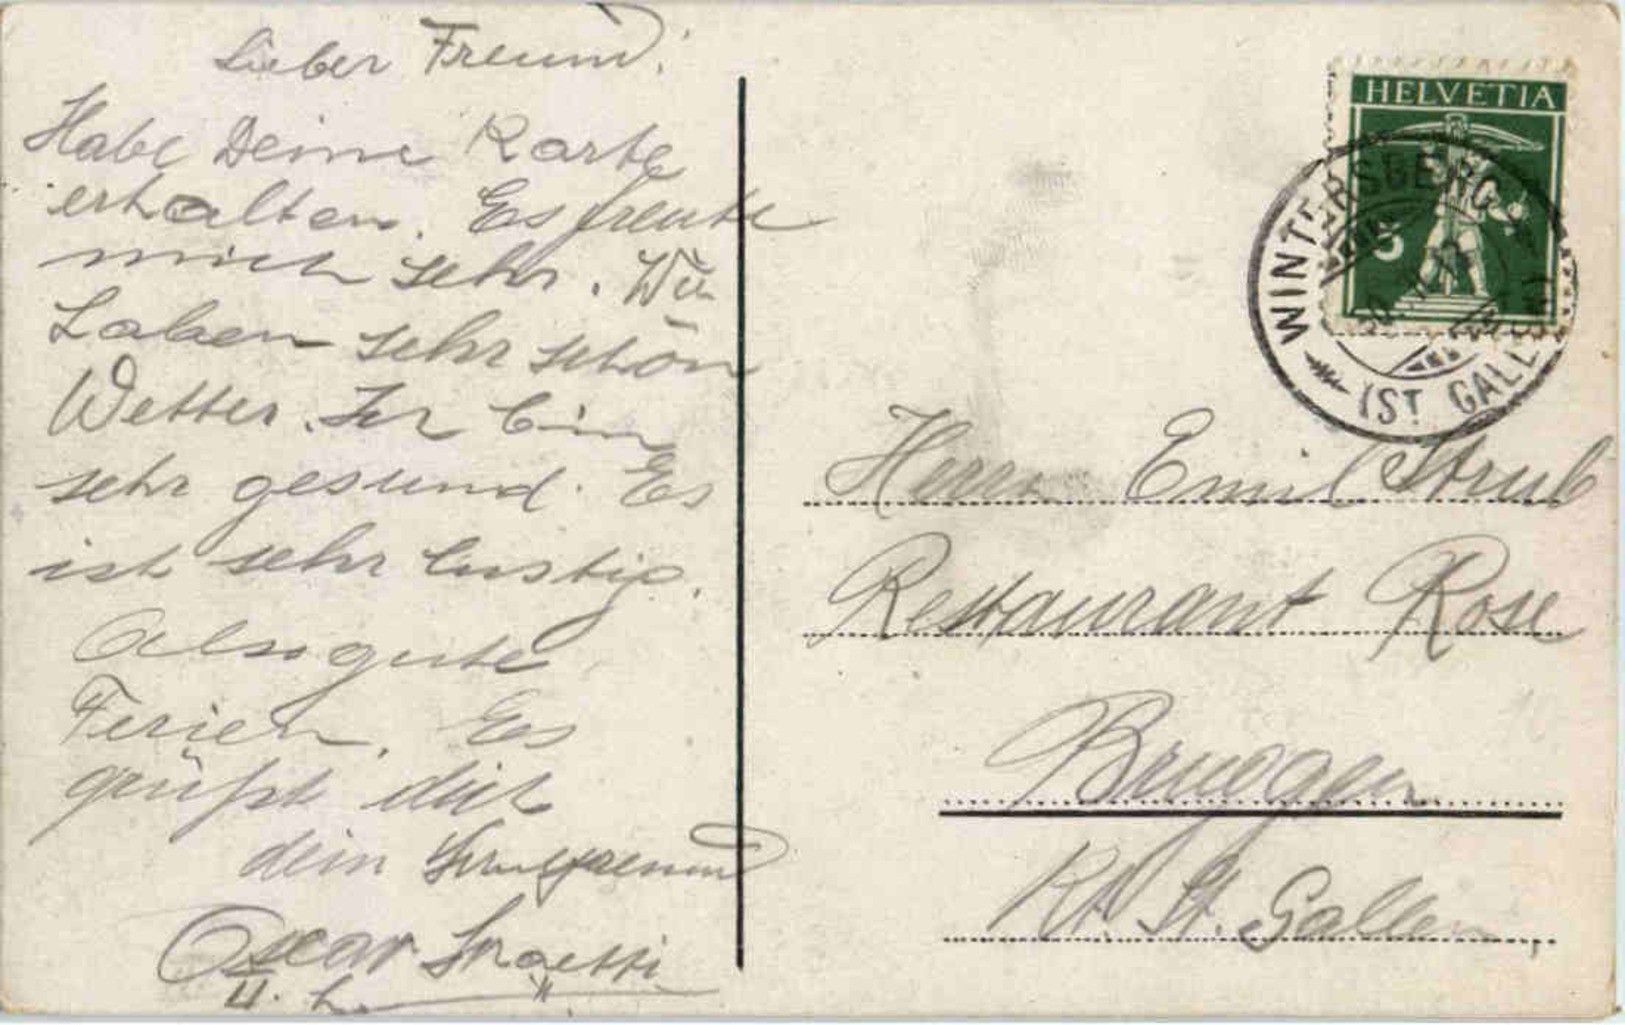 Lieber Freund!
Habe Deine Karte
erhalten. Es freute
mich sehr. Wir
haben sehr schön
Wetter. Ich bin
sehr gesund. Es
ist sehr lustig.
Also gute
Ferien. Es
grüßt dich
dein Schulfreund
Oscar
HELVETIA
5
WINTERSBERG
(ST. GALLEN)
Herrn Emil Strub
Restaurant Rose
Bruggen
Kt. St. Gallen